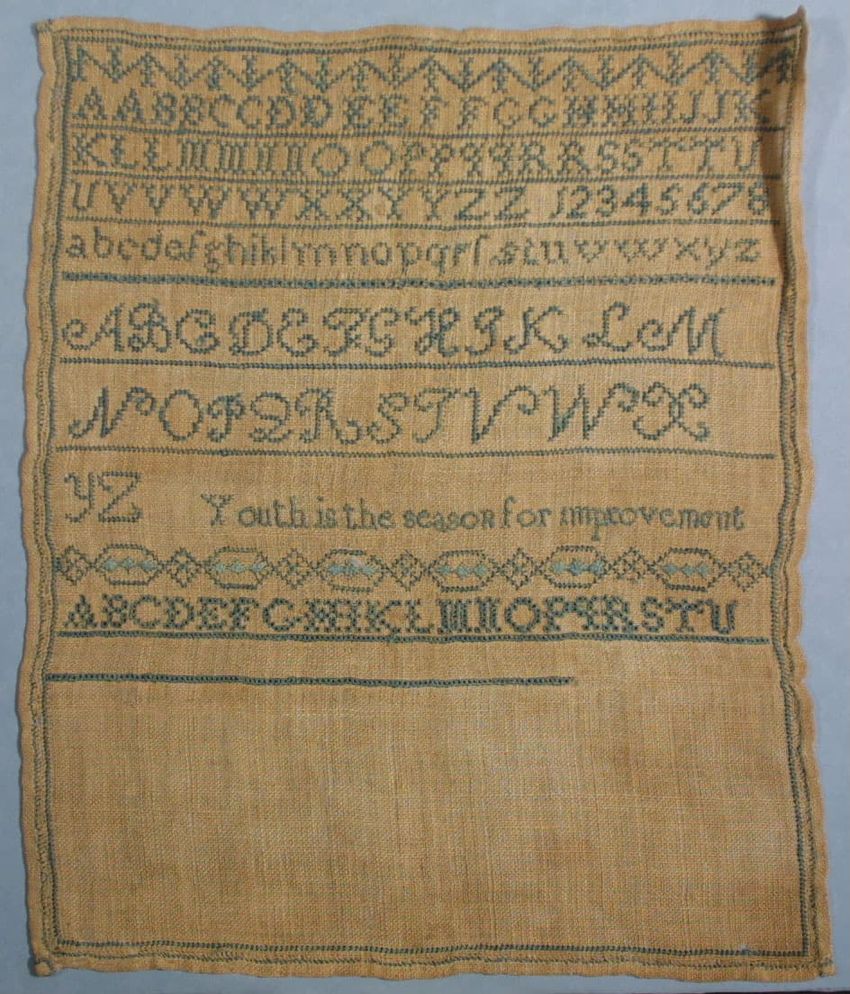 AABBCCDDEEFFGGHHIIJJK
KLLMMNNOOPPqqRRSSTTU
UVVWWXXYYZZ 12345678
abcdefghiklmnopqrſstuvwxyz
ABCDEFGHIKLM
NOPQRSTVWX
YZ Youth is the season for improvement
ABCDEFGHIKLMNOPqRSTU